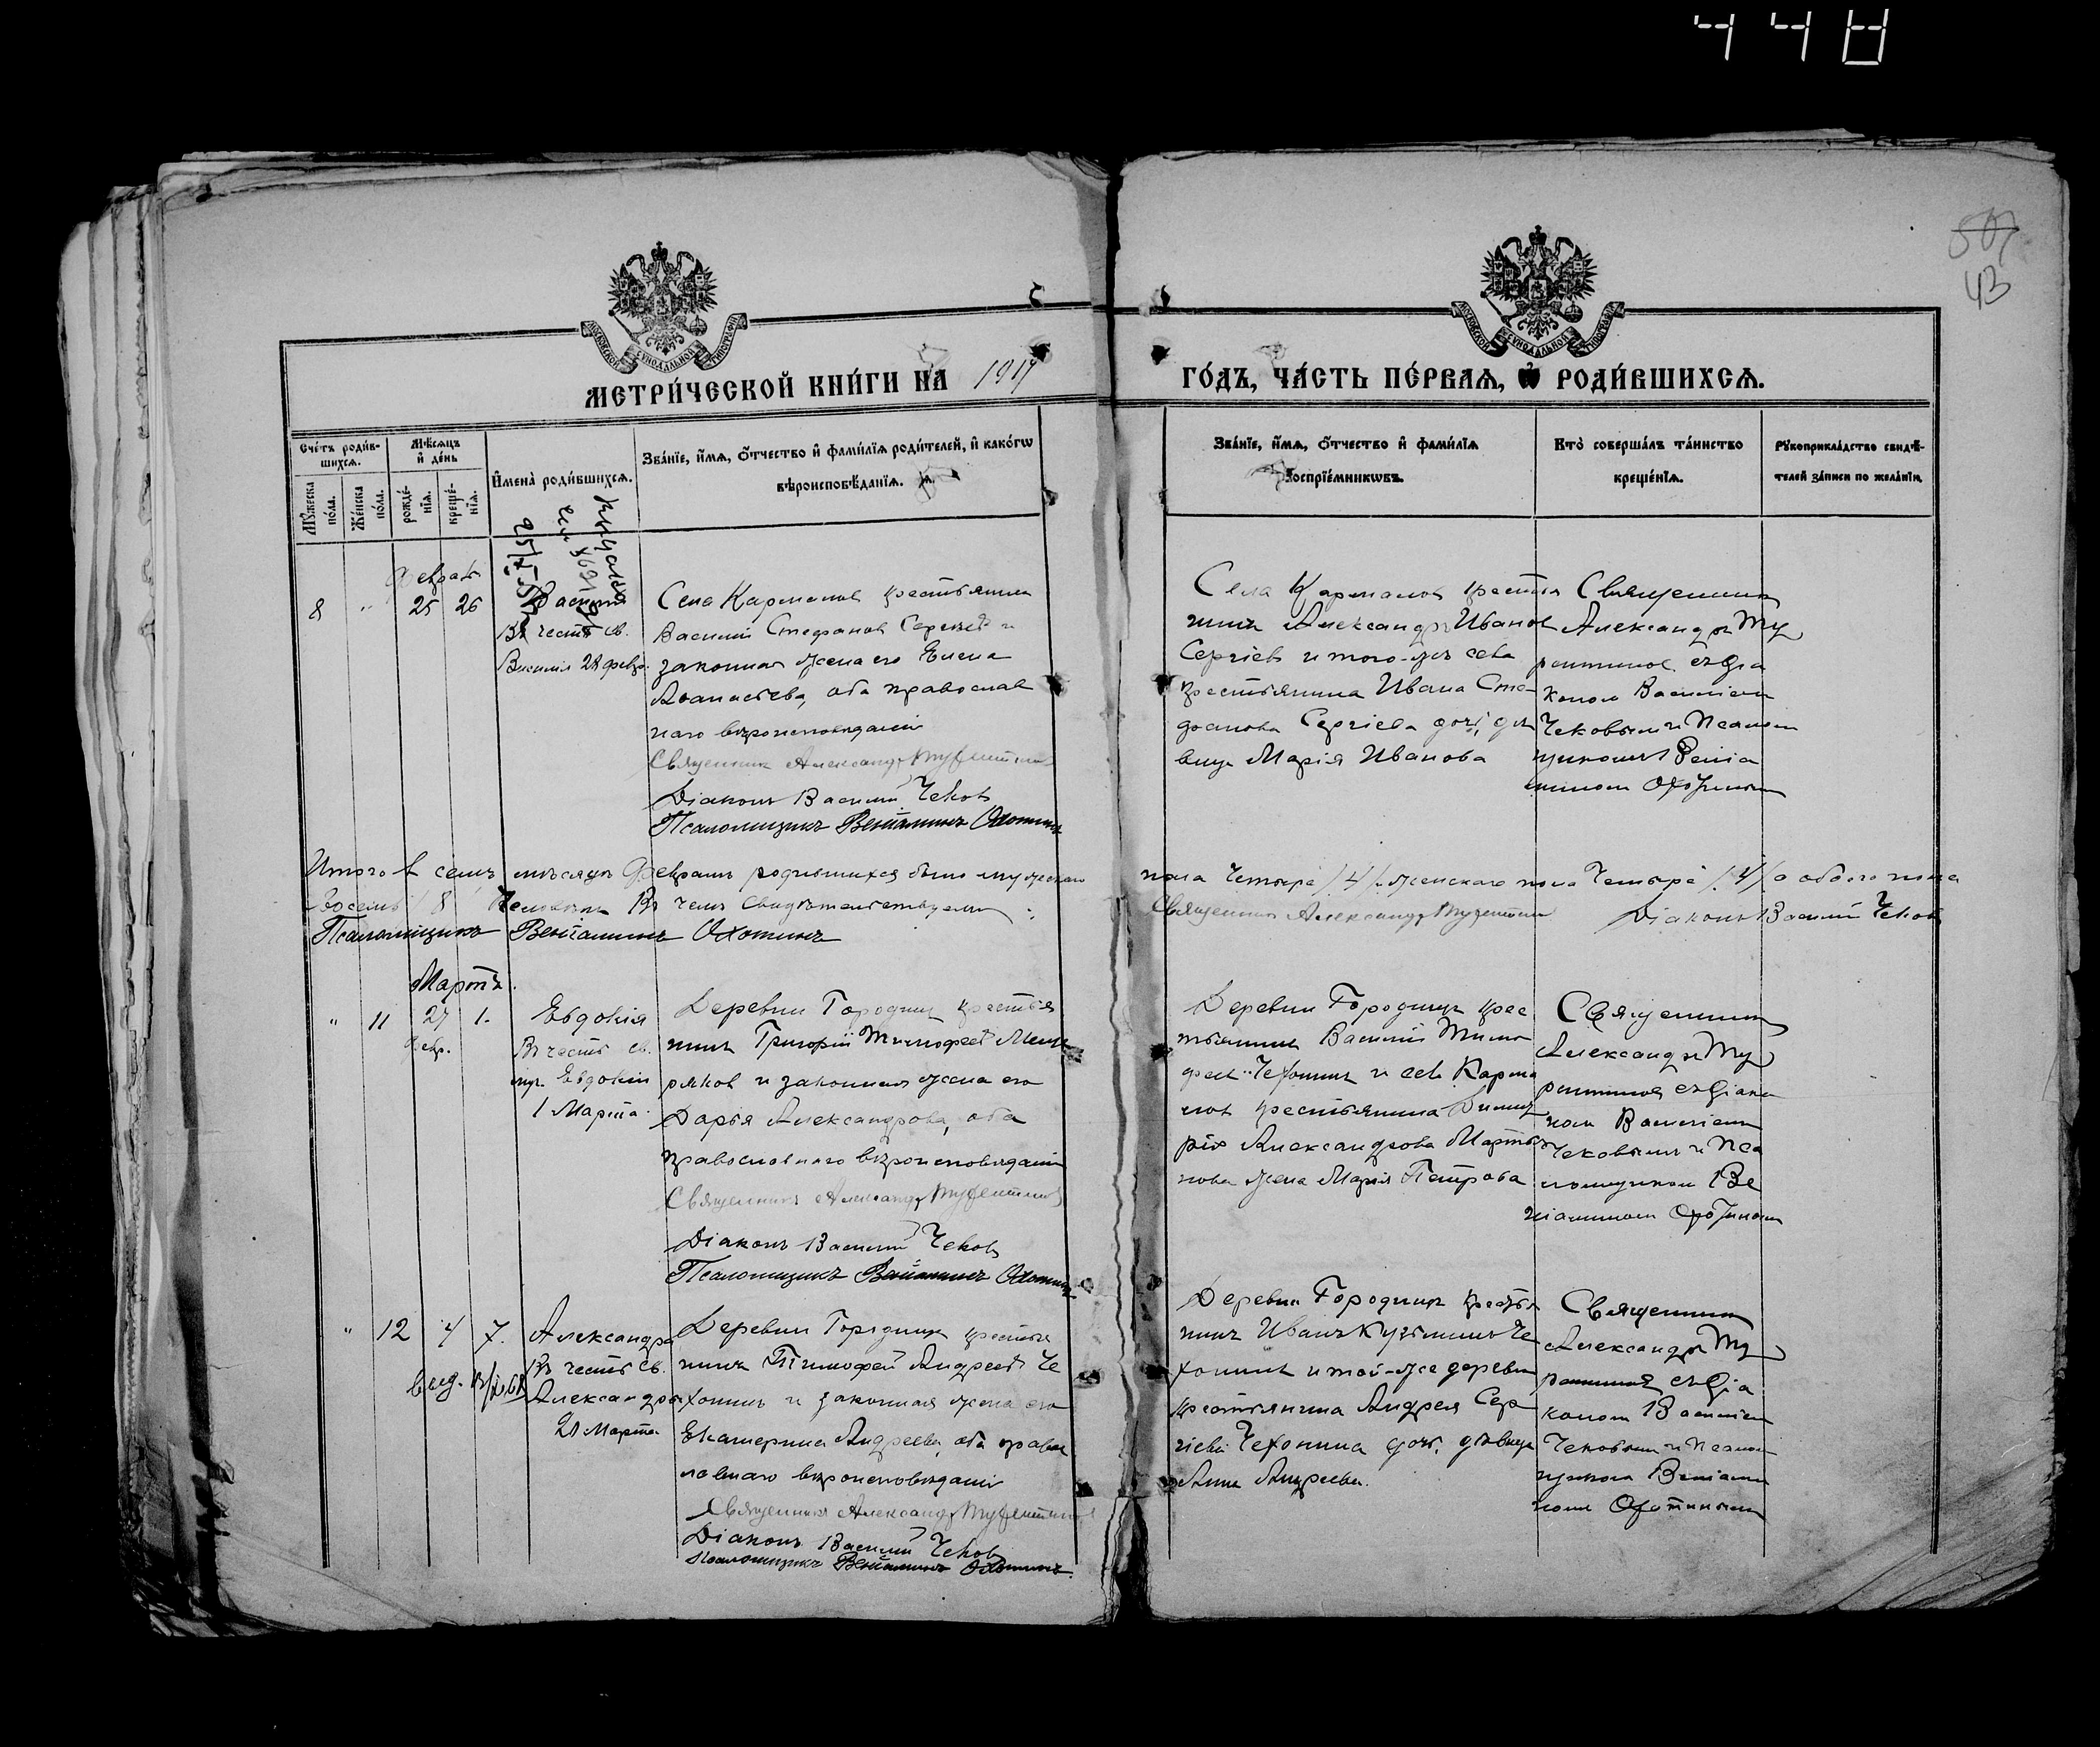 448
507
43
МЕТРИ́ЧЕСКОЙ КНИ́ГИ НА 1917
ГО́ДЪ, ЧА́СТЬ ПЕ́РВАЯ, Ѡ҆ РОДИ́ВШИХСЯ.
Сче́тъ роди́в-
шихся.
Мѣ́сяцъ
и҆ де́нь
И҆мена̀ роди́вшихся.
Зва́нїе, и҆́мя, о҆́тчество и҆ фами́лїя роди́телей, и҆ како́гѡ
вѣроисповѣ́данїя.
Мꙋ́жеска
по́ла.
Же́нска
по́ла.
рожде́-
нїя.
креще́-
нїя.
Зва́нїе, и҆́мя, о҆́тчество и҆ фами́лїя
воспрїе́мникѡвъ.
Кто̀ соверша́лъ та́инство
креще́нїя.
Рꙋкоприкла́дство свидѣ́-
телей за́писи по жела́нїю
Февраль
8 " 25 26
Василій
Въ честь св.
Василія 28 февр.
Села Карманов крестьянин
Василій Стефанов Сергиев и
законная жена его Елена
Аѳанасьева, оба православ
наго вѣроисповѣданія
Священник Александр
Діаконъ Василій Чеков
Псаломщикъ Веніаминъ Охотинъ
Села Карманов крестья
нинъ Александръ Иванов
Сергіев и того-же села
крестьянина Ивана Сте
фанова Сергіева дочь, дѣ
вица Марія Иванова
Священник
Александръ Ту
рентинов съ діа
коном Василіем
Чековым и псалом
щиком Веніа
мином Охотиным
Итого в семъ мѣсяцѣ Февралѣ родившихся было мужскаго
пола Четыре /4/ женскаго пола Четыре /4/ а обоего пола
Восемь /8/ человѣкъ Въ чемъ свидѣтельствуемъ:
Священник Александр
Діаконъ Василій Чеков
Псаломщикъ Веніаминъ Охотинъ
Мартъ
" 11 27 1.
февр.
Евдокія
Въ честь св.
муч. Евдокіи
1 Марта
Деревни Городищ крестья
нинъ Григорій Тимофеев
ряков и законная жена его
Дарья Александрова, оба
православнаго вѣроисповѣданія
Священник Александр
Діаконъ Василій Чеков
Псаломщикъ Веніаминъ Охотинъ
Деревни Городищ крес
тьянинъ Василій Тимо
феев Чехонин и села Карма
нов крестьянина Димит
рія Александрова Марты
нова жена Марія Петрова
Священник
Александръ Ту
рентинов съ діако
ном Василіем
Чековым и пса
ломщиком Ве
ніамином Охотиным
" 12 4 7.
Александра
Въ честь св.
Александры
21 Марта
Деревни Городищ крестья
нинъ Тимофей Андреев Че
хонинъ и законная жена его
Екатерина Андреева, оба правос
лавнаго вѣроисповѣданія
Священник Александр
Діаконъ Василій Чеков
Псаломщикъ Веніаминъ Охотинъ
Деревни Городищ крестья
нинъ Иванъ Кузьминъ Че
хонин и той-же деревни
крестьянина Андрея Сер
гіева Чехонина дочь, дѣвица
Анна Андреева.
Священник
Александръ Ту
рентинов съ діа
коном Василіем
Чековым и псалом
щиком Веніами
ном Охотиным